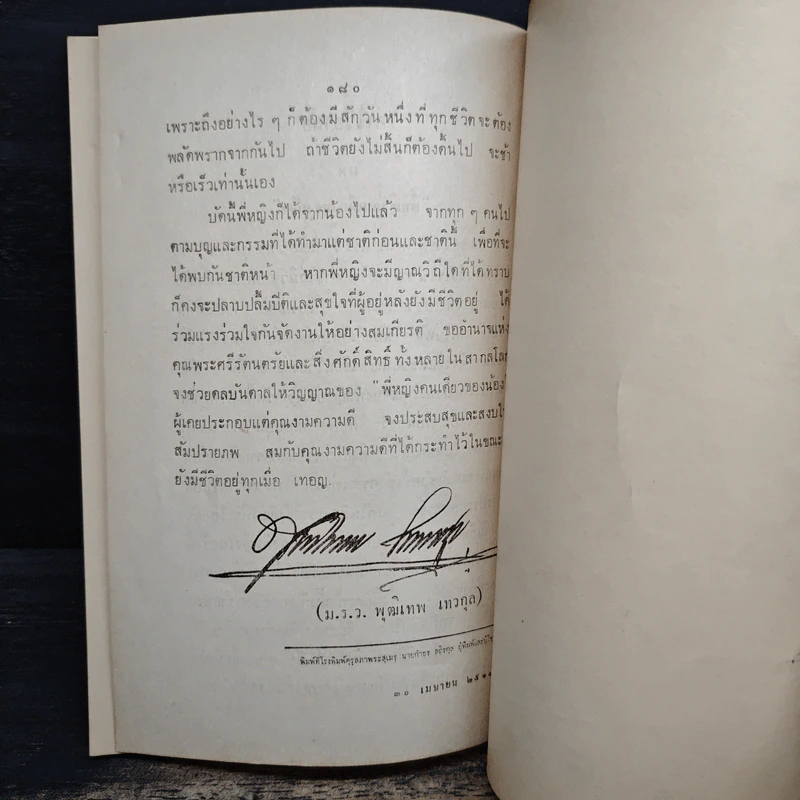 ๑๘๐
เพราะถึงอย่างไร ๆ ก็ต้องมีสักวันหนึ่งที่ทุกชีวิตจะต้อง
พลัดพรากจากกันไป ถ้าชีวิตยังไม่สิ้นก็ต้องดิ้นไป จะช้า
หรือเร็วเท่านั้นเอง
บัดนี้พี่หญิงก็ได้จากน้องไปแล้ว จากทุก ๆ คนไป
ตามบุญและกรรมที่ได้ทำมาแต่ชาติก่อนและชาตินี้ เพื่อที่จะ
ได้พบกันชาติหน้า หากพี่หญิงจะมีญาณวิถีใดที่ได้ทราบ
ก็คงจะปลาบปลื้มปีติและสุขใจที่ผู้อยู่หลังยังมีชีวิตอยู่ ได้
ร่วมแรงร่วมใจกันจัดงานให้อย่างสมเกียรติ ขออำนาจแห่ง
คุณพระศรีรัตนตรัยและสิ่งศักดิ์สิทธิ์ทั้งหลายในสากลโลก
จงช่วยดลบันดาลให้วิญญาณของ "พี่หญิงคนเดียวของน้อง"
ผู้เคยประกอบแต่คุณงามความดี จงประสบสุขและสงบใน
สัมปรายภพ สมกับคุณงามความดีที่ได้กระทำไว้ในขณะ
ยังมีชีวิตอยู่ทุกเมื่อ เทอญ.
(ม.ร.ว. พุฒิเทพ เทวกุล)
พิมพ์ที่โรงพิมพ์คุรุสภาพระสุเมรุ นายกำธร สถิรกุล ผู้พิมพ์และผู้
๓๐ เมษายน